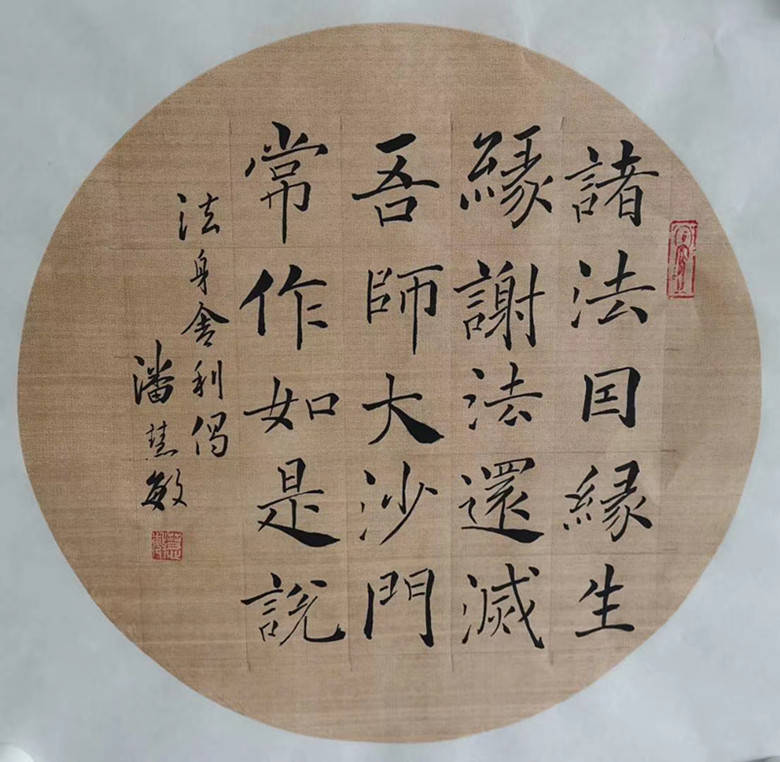 諸法囙緣生
緣謝法還滅
吾師大沙門
常作如是說
法身舍利偈
潘慧敏